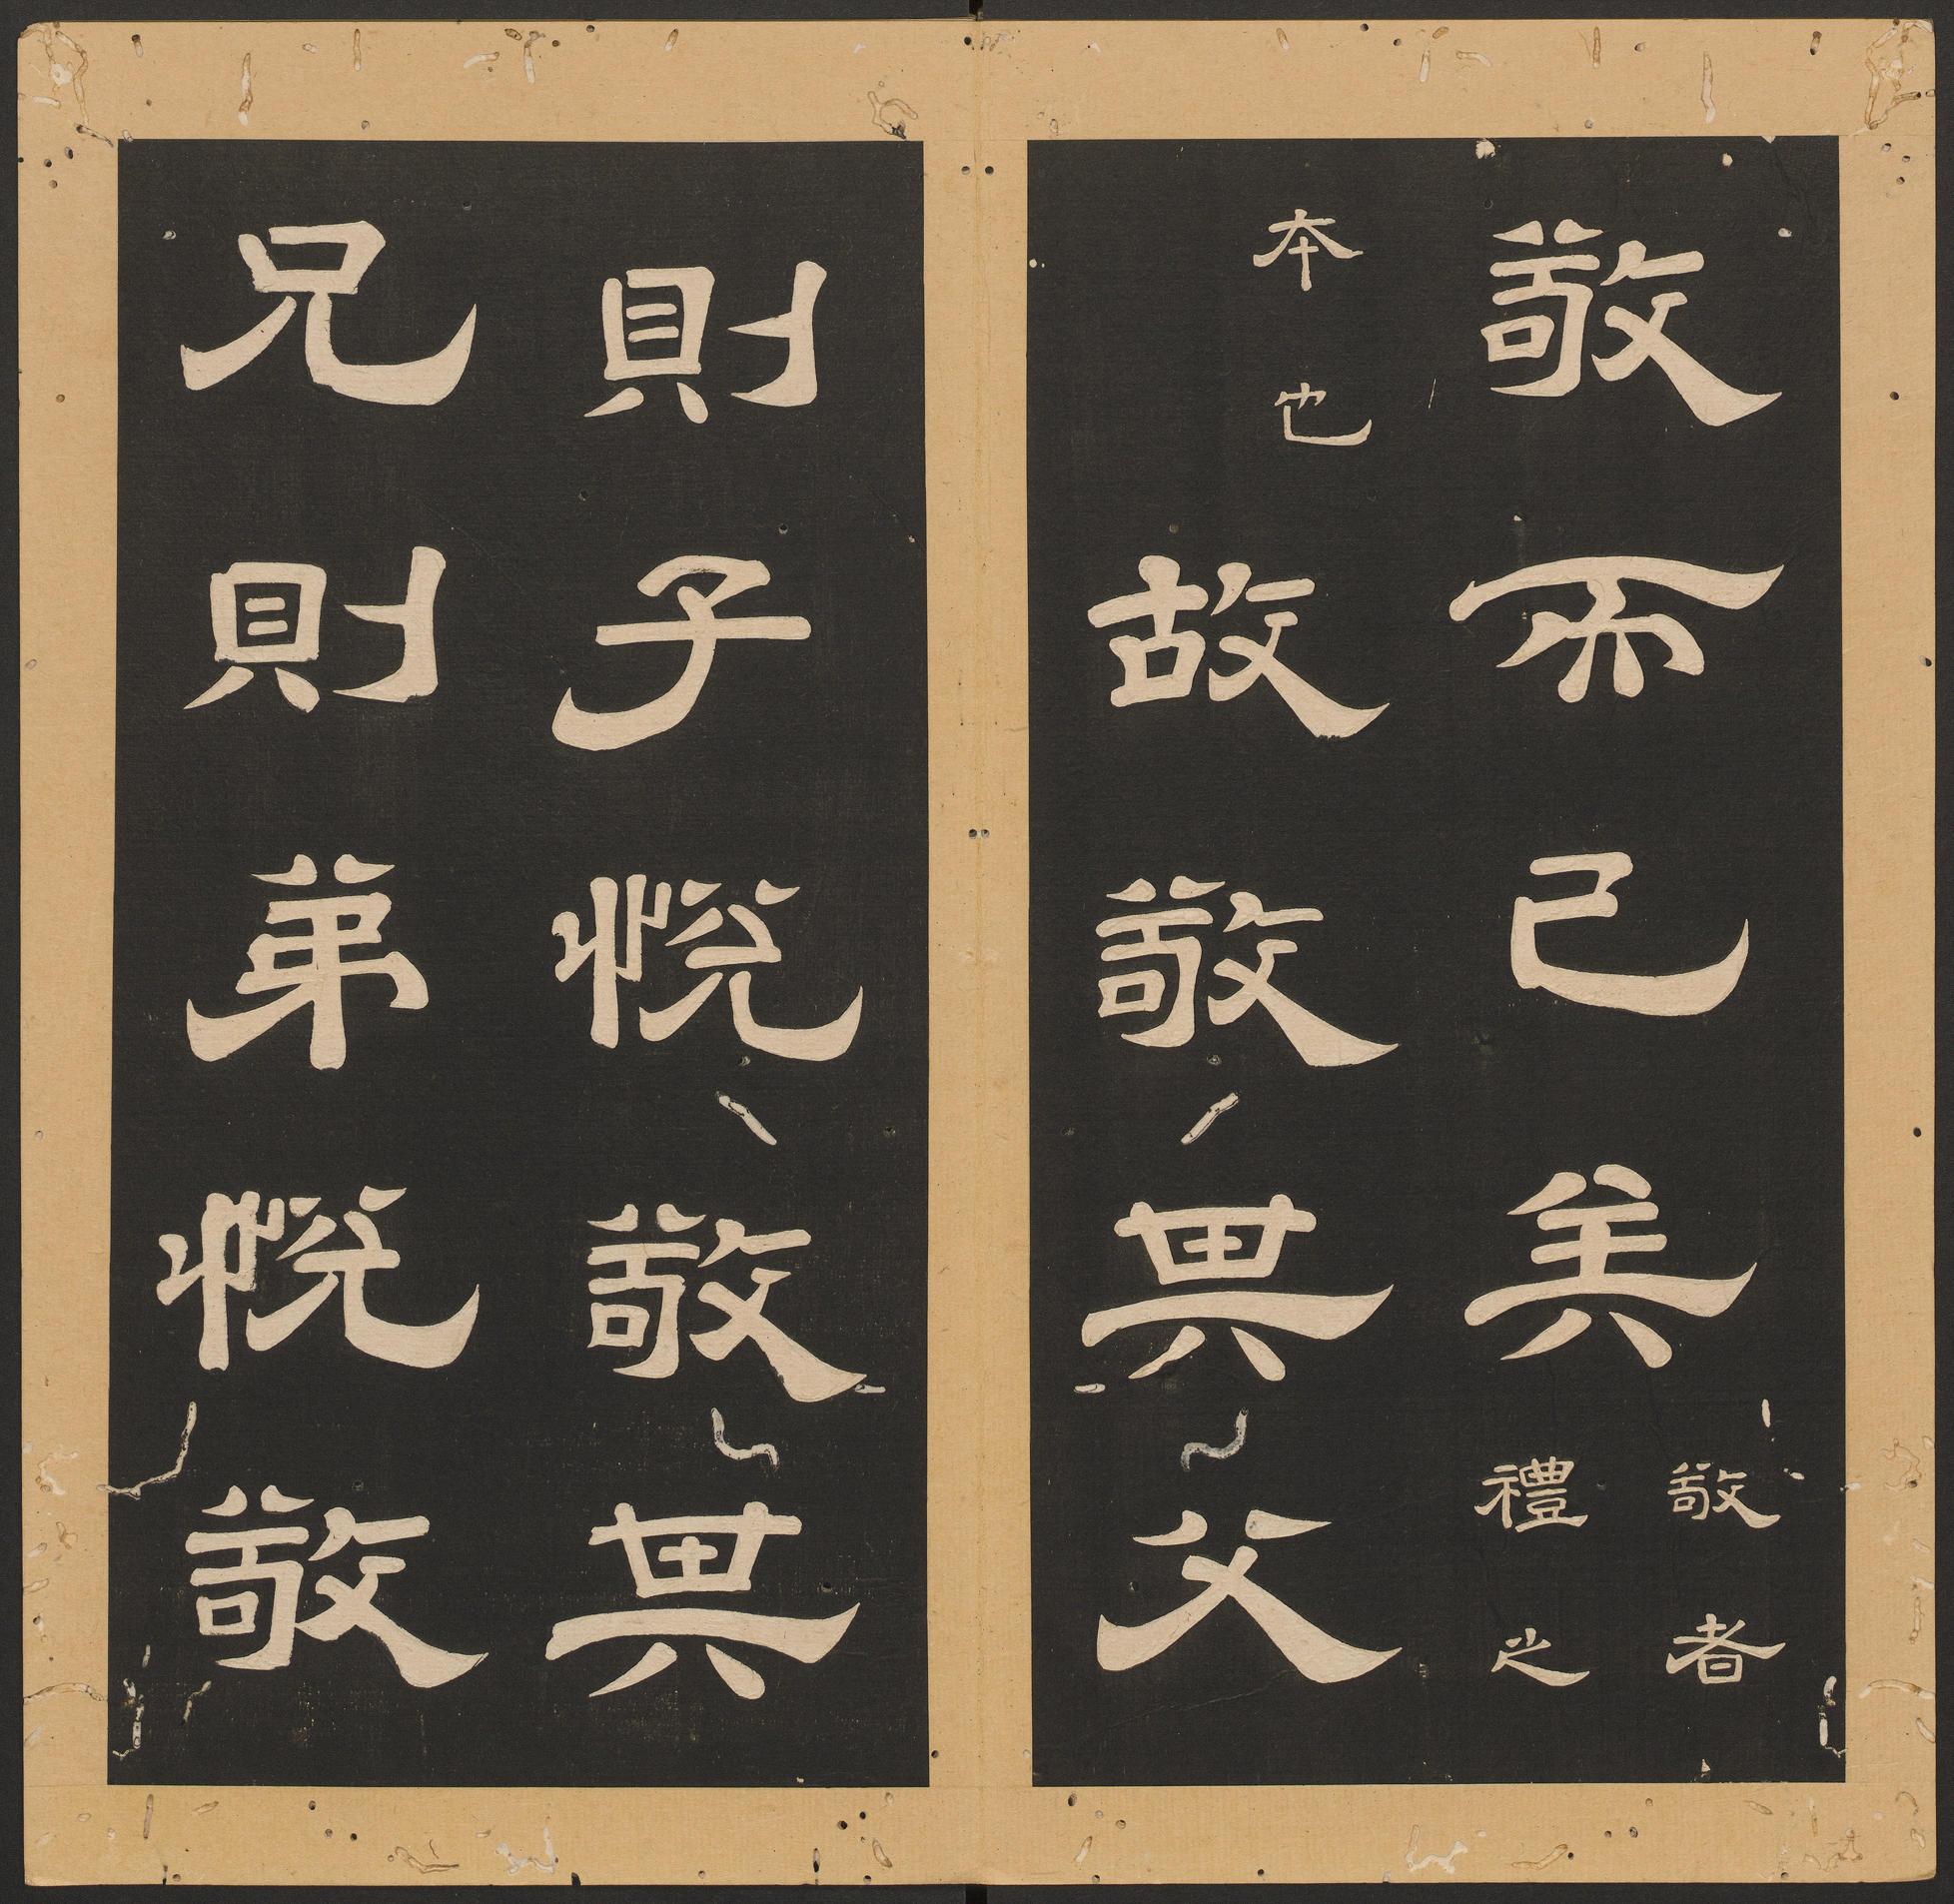 敬而已矣敬者禮之
本也故敬其父
則子悅敬其
兄則弟悅敬